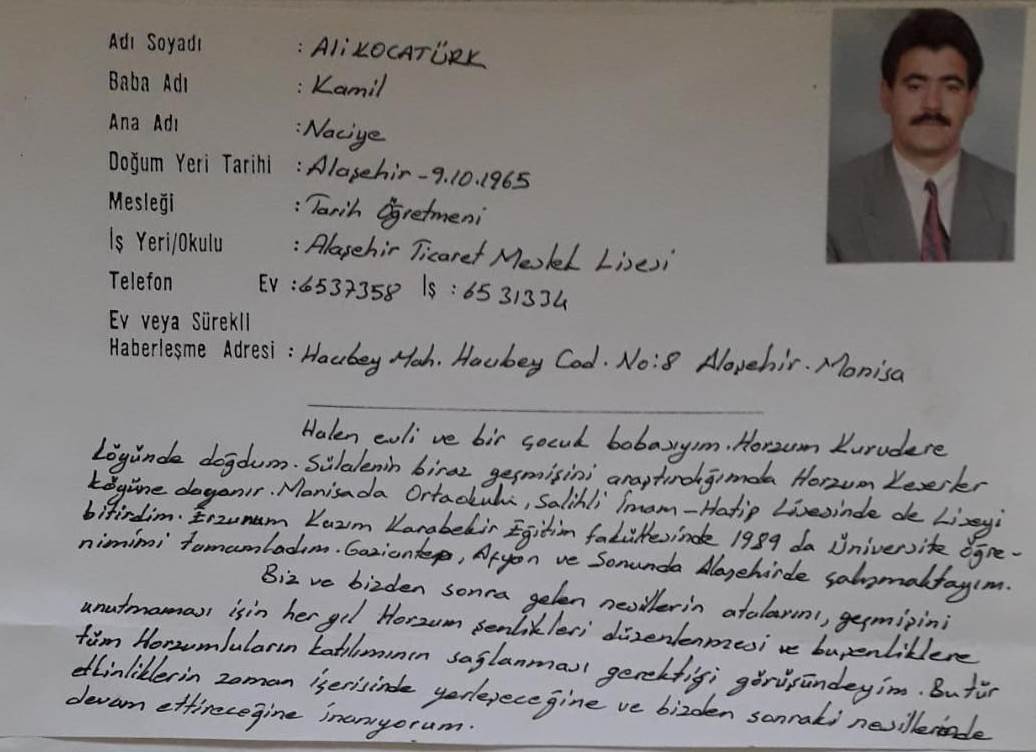 Adı Soyadı : Ali KOCATÜRK
Baba Adı : Kamil
Ana Adı : Naciye
Doğum Yeri Tarihi : Alaşehir - 9.10.1965
Mesleği : Tarih Öğretmeni
İş Yeri/Okulu : Alaşehir Ticaret Meslek Lisesi
Telefon Ev : 6537358 İş : 65 31334
Ev veya Sürekli
Haberleşme Adresi : Hacıbey Mah. Hacıbey Cad. No:8 Alaşehir - Manisa
Halen evli ve bir çocuk babasıyım. Horzum Kurudere
köyünde doğdum. Sülalenin biraz geçmişini araştırdığımda Horzum Keserler
köyüne dayanır. Manisada Ortaokulu, Salihli İmam-Hatip Lisesinde de Liseyi
bitirdim. Erzurum Kazım Karabekir Eğitim fakültesinde 1989 da Üniversite öğre-
nimimi tamamladım. Gaziantep, Afyon ve Sonunda Alaşehirde çalışmaktayım.
Biz ve bizden sonra gelen nesillerin atalarını, geçmişini
unutmaması için her yıl Horzum şenlikleri düzenlenmesi ve bu şenliklere
tüm Horzumluların katılımının sağlanması gerektiği görüşündeyim. Bu tür
etkinliklerin zaman içerisinde yerleşeceğine ve bizden sonraki nesillerinde
devam ettireceğine inanıyorum.